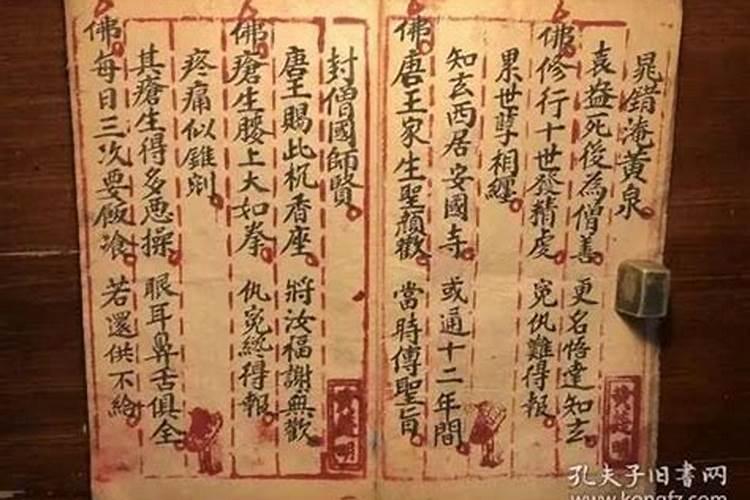 晁錯淹黃泉
袁盎死後為僧善 更名悟達知玄
佛修行十世發精虔 冤仇難得報
累世孽相纏
知玄西居安國寺 或通十二年間
佛唐王家生聖顏歡 當時傳聖旨
封僧國師賢
唐王賜此杌香座 將汝福謝無歡
佛瘡生腰上大如拳 仇冤總得報
疼痛似錐剜
其瘡生得多悪操 眼耳鼻舌俱全
佛每日三次要飯飡 若還供不給
孔夫子旧书网